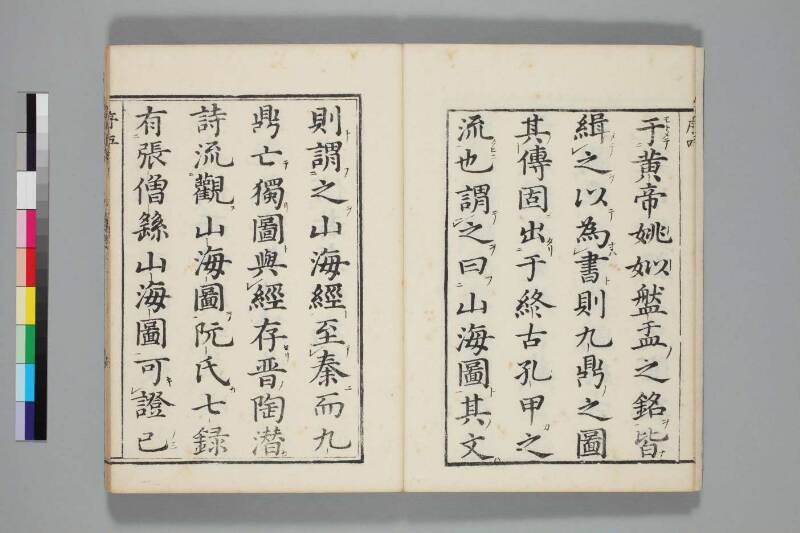 于黃帝姚姒盤盂之銘皆
緝之以為書則九鼎之圖
其傳固出于終古孔甲之
流也謂之曰山海圖其文
則謂之山海經至秦而九
鼎亡獨圖與經存晋陶潛
詩流觀山海圖阮氏七録
有張僧繇山海圖可證已